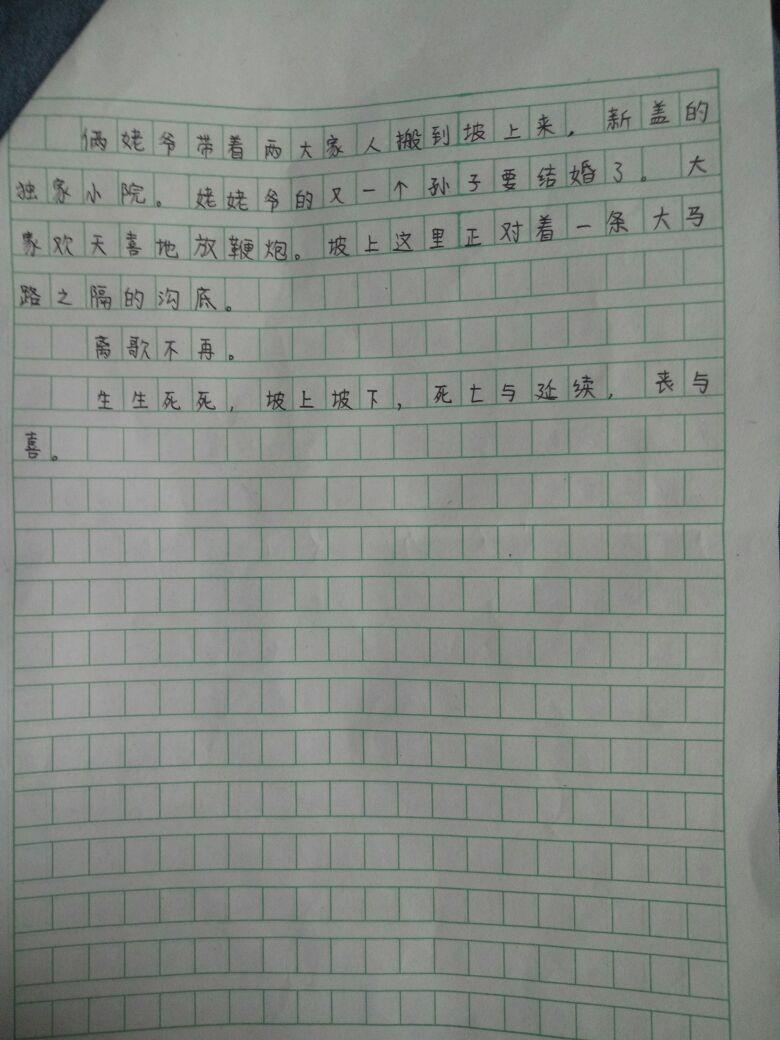 俩姥爷带着两大家人搬到坡上来，新盖的
独家小院。姥姥爷的又一个孙子要结婚了。大
家欢天喜地放鞭炮。坡上这里正对着一条大马
路之隔的沟底。
离歌不再。
生生死死，坡上坡下，死亡与延续，丧与
喜。